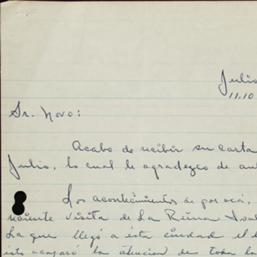 Julio
11.10
Sr. Novo:
Acabo de recibir su carta
Julio, lo cual le agradezco de an
Los acontecimientos de por acá,
ciente visita de La Reina Isa
La que llegó a ésta ciudad el d
esto acaparó la atencion de toda la